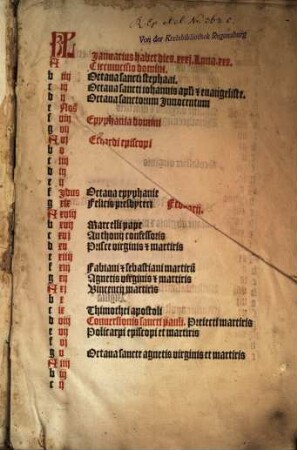 Von der Kreisbibliothek Regensburg
KL Januarius habet dies .xxxi. luna .xxx.
A Circumcisio domini
b iiij Octaua sancti stephani.
c iij Octaua sancti iohannis apłi ⁊ euangeliste.
d ij Octaua sanctorum Innocentum
e Nōs
f viij Epyphania domini
g vij
A vj Erhardi episcopi
b v
c iiij
d iij
e ij
f Jdus Octaua epyphanie
g xix Felicis presbyteri
A xviij
b xvij Marcelli pape
c xvj Anthonij confessoris
d xv Prisce virginis ⁊ martiris
e xiiij
f xiij Fabiani ⁊ sebastiani martirū
g xij Agnetis virginis ⁊ martiris
A xj Vincencij martiris
b x
c ix Thimothei apostoli
d viij Conuersionis sancti pauli. Proiecti martiris
e vij Policarpi episcopi et martiris
f vj
g v Octaua sancte agnetis virginis et martiris
A iiij
b iij
c ij